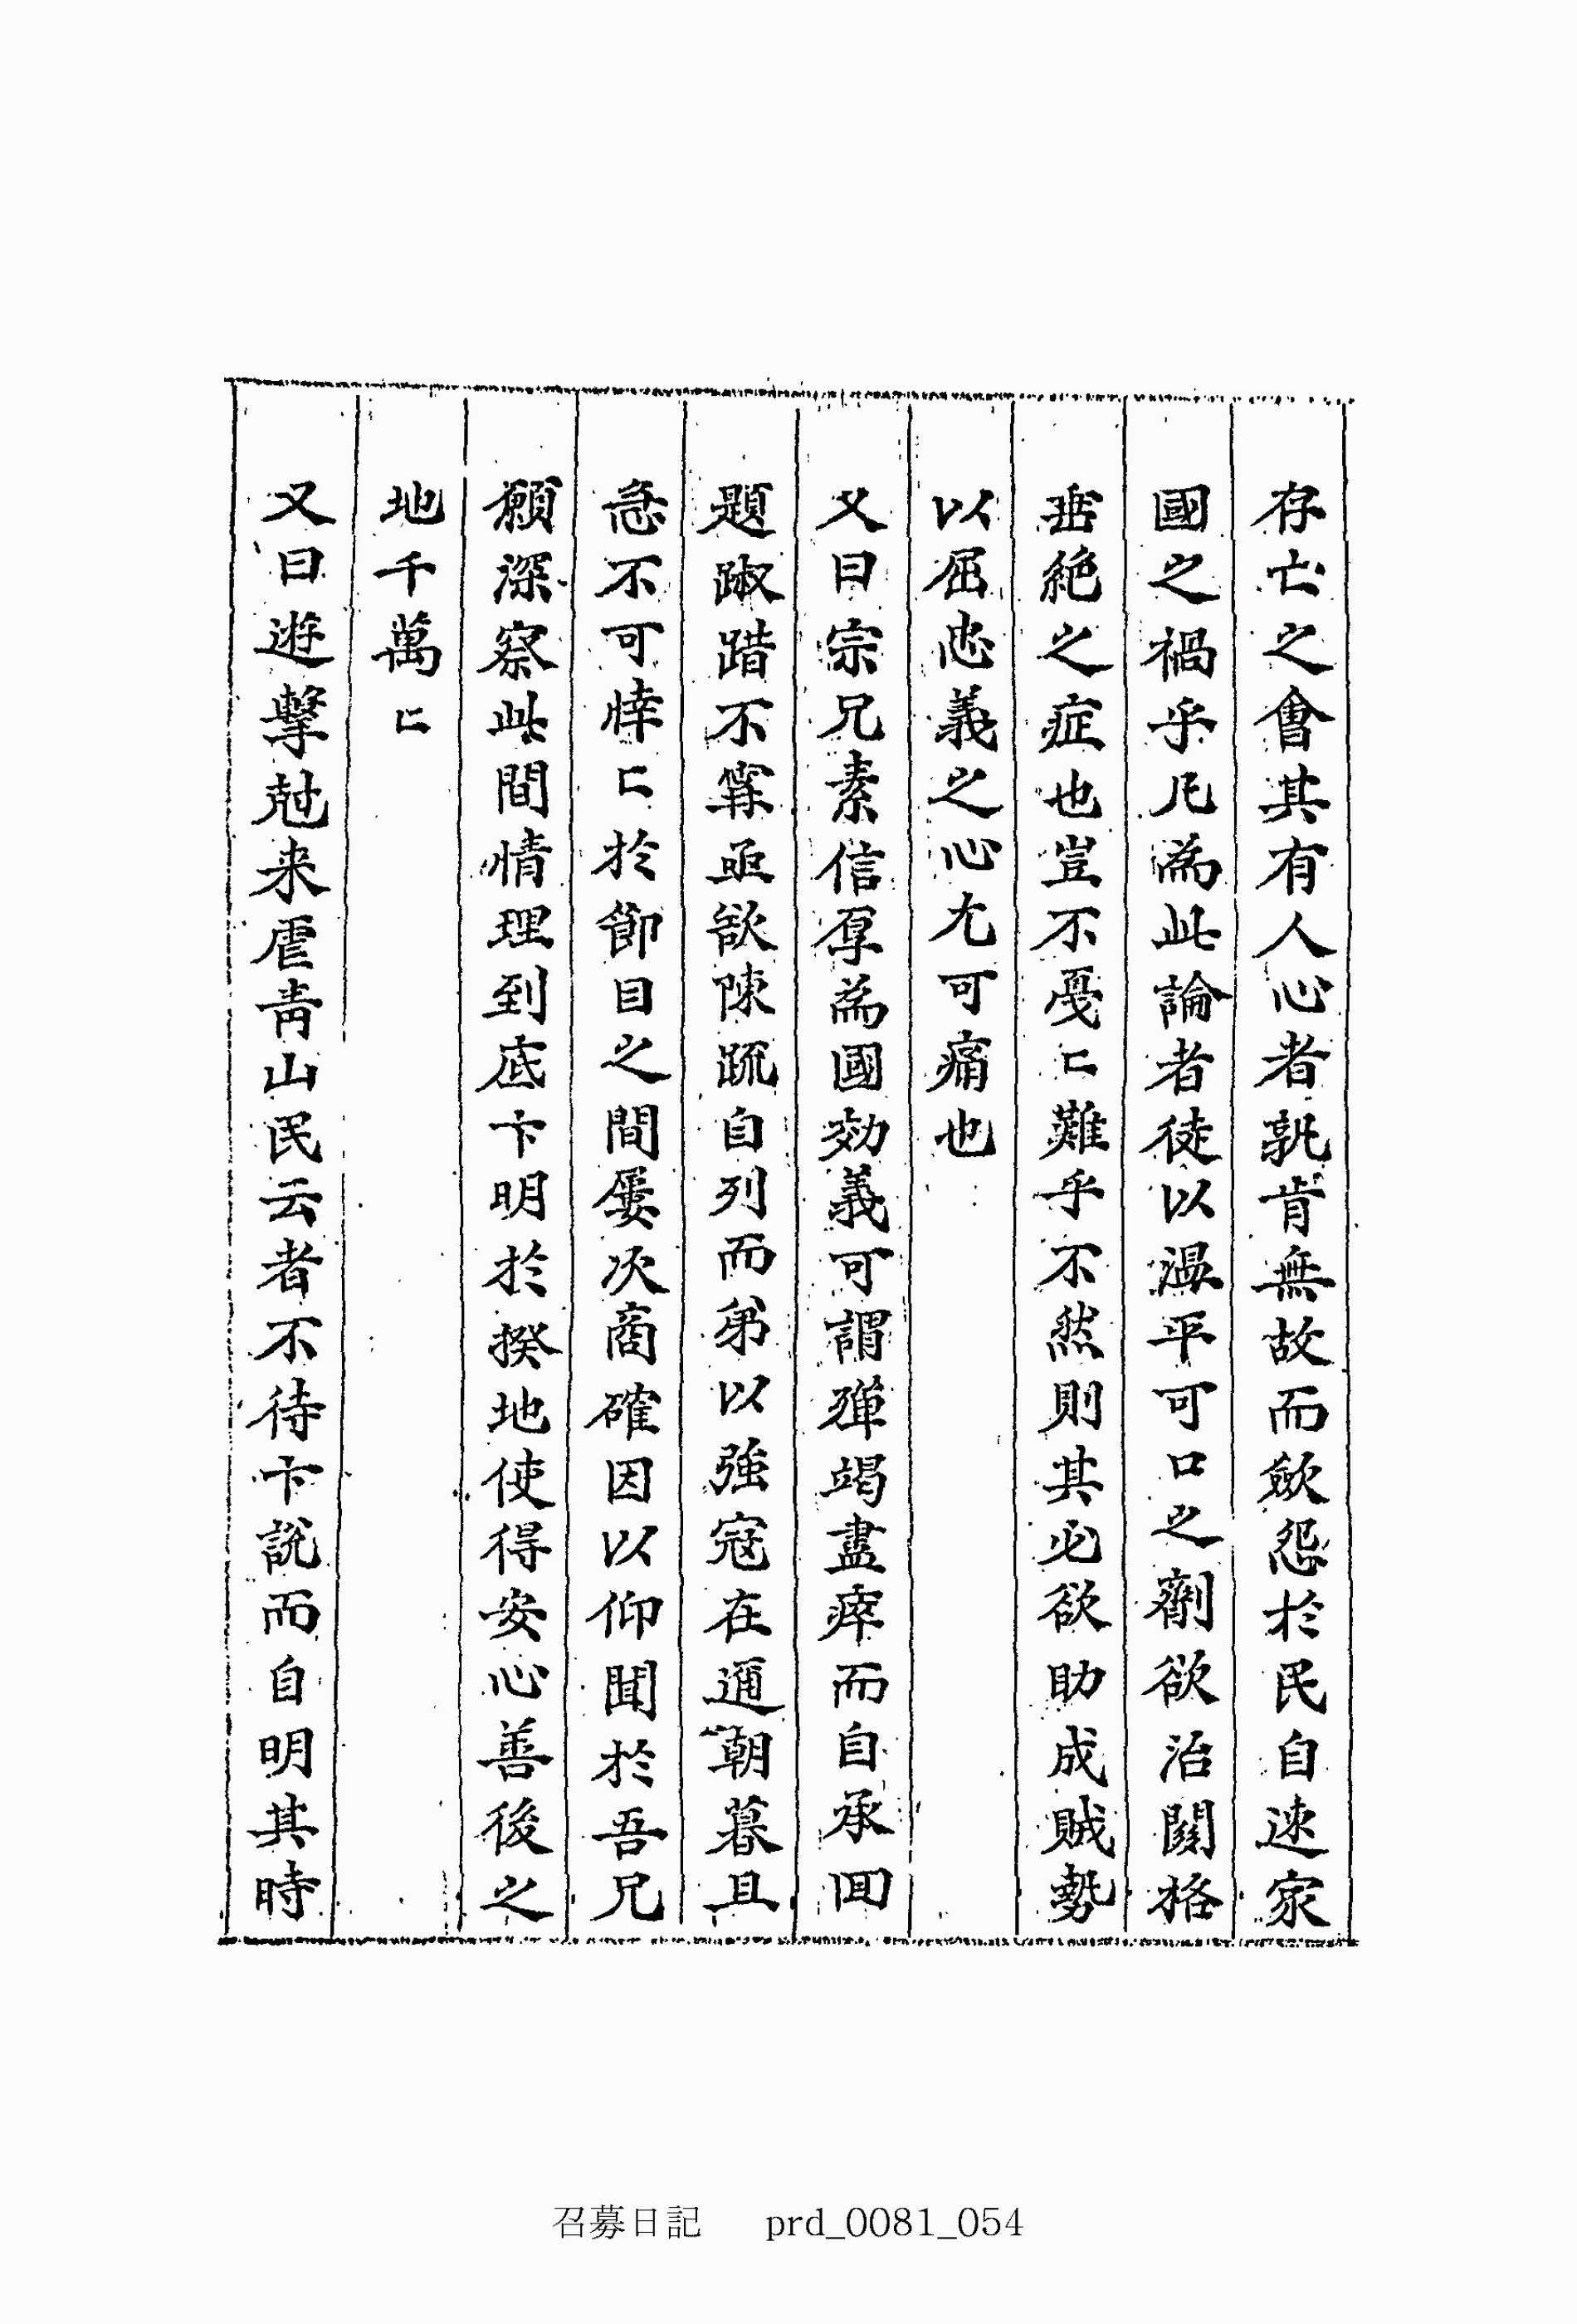 存亡之會其有人心者孰肯無故而斂怨於民自速家
國之禍乎凡為此論者徒以溫平可口之劑欲治關格
垂絕之症也豈不戞匕難乎不然則其必欲助成賊勢
以屈忠義之心尤可痛也
又曰宗兄素信厚為國効義可謂殫竭盡瘁而自承回
題踧踖不寧亟欲陳疏自列而弟以強寇在逼朝暮且
急不可悻匕於節目之間屢次商確因以仰聞於吾兄
願深察此間情理到底卞明於揆地使得安心善後之
地千萬匕
又曰遊擊尅来虐靑山民云者不待卞說而自明其時
召募日記 prd_0081_054